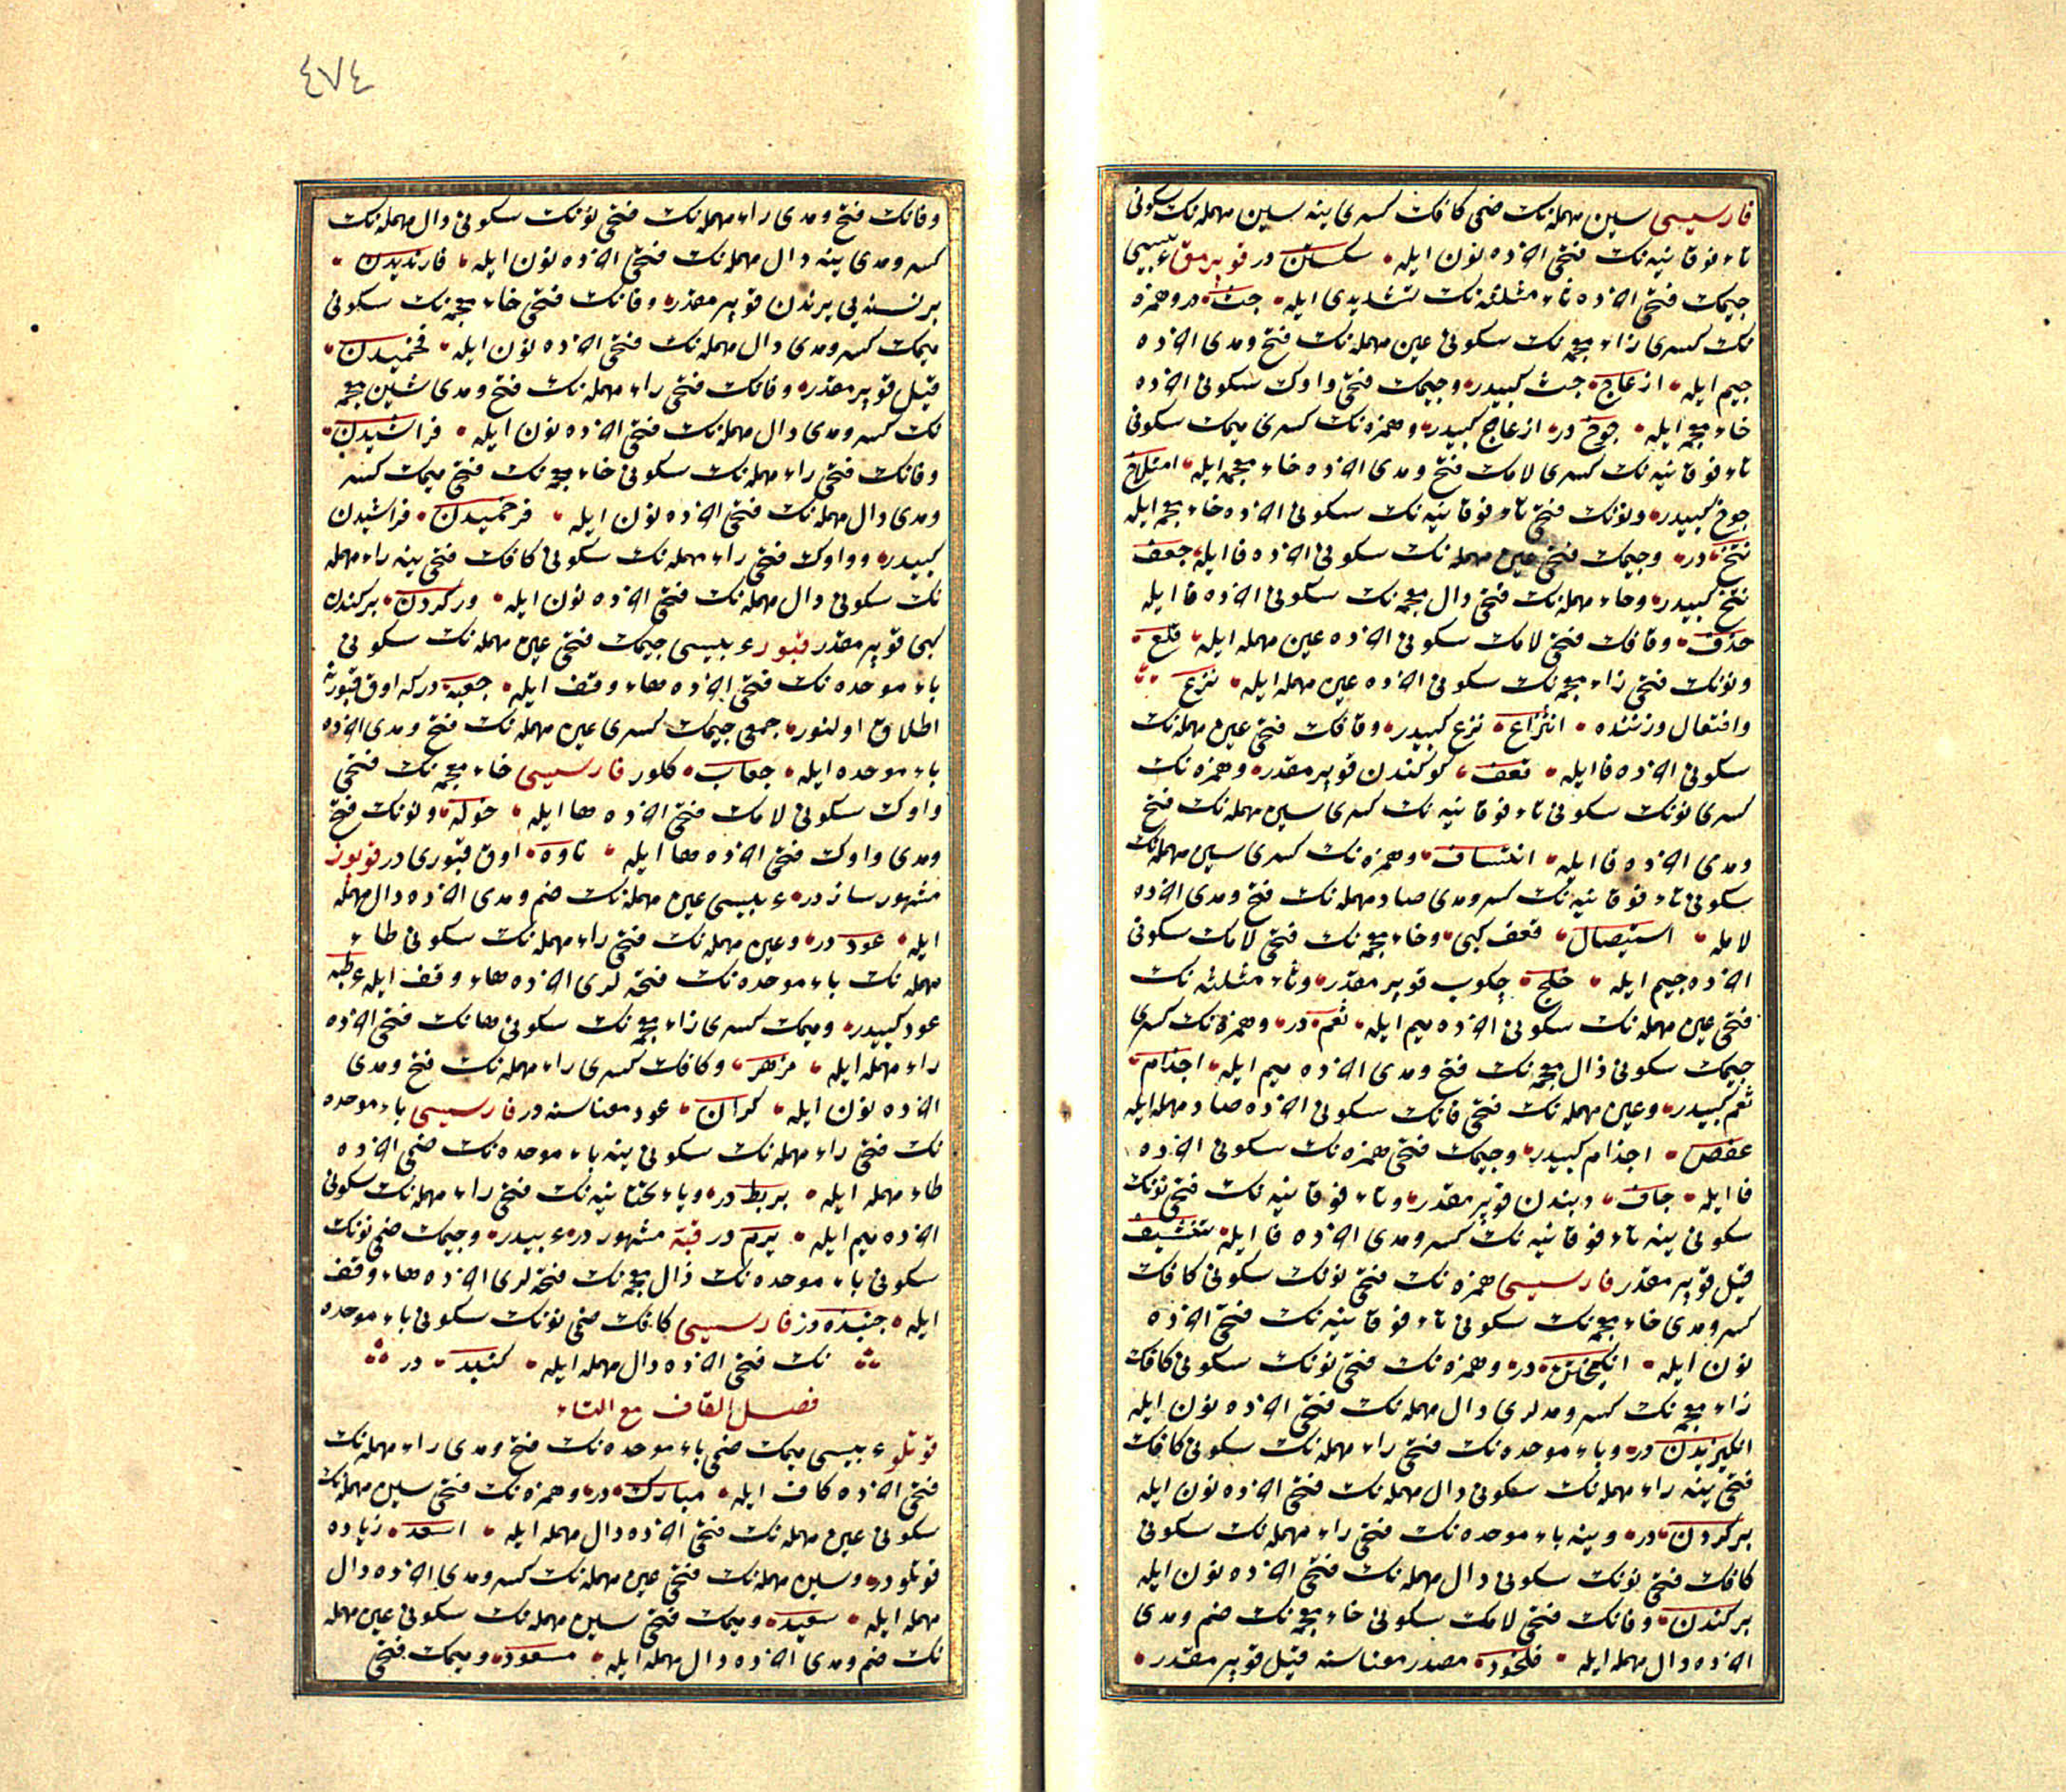 فارسیسی سین مهمله‌نك ضمی كافك كسری ینه سین مهمله‌نك سكونی
تاء فوقانیه‌نك فتحی اخرده نون ایله سكستن در قوپرمق عربیسی
جیمك فتحی اخرده ثاء مثلثه‌نك تشدیدی ایله جث در و همزه
نك كسری زاء معجمه‌نك سكونی عین مهمله‌نك فتح ومدی اخرده
جیم ایله ازعاج جث كبیدر وجیمك فتحی واوك سكونی اخرده
خاء معجمه ایله جوخ در ازعاج كبیدر وهمزه‌نك كسری میمك سكونی
تاء فوقانیه‌نك كسری لامك فتح ومدی اخرده خاء معجمه ایله امتلاخ
جوخ كبیدر ونونك فتحی تاء فوقانیه‌نك سكونی اخرده خاء معجمه ایله
نتخ در وجیمك فتحی عین مهمله‌نك سكونی اخرده فا ایله جعف
نتخ كبیدر وحاء مهمله‌نك فتحی ذال معجمه‌نك سكونی اخرده فا ایله
حذف وقافك فتحی لامك سكونی اخرده عین مهمله ایله قلع
ونونك فتحی زاء معجمه‌نك سكونی اخرده عین مهمله ایله نزع
وافتعال وزننده انتزاع نزع كبیدر وقافك فتحی عین مهمله‌نك
سكونی اخرده فا ایله قعف كوكندن قوپرمقدر وهمزه‌نك
كسری نونك سكونی تاء فوقانیه‌نك كسری سین مهمله‌نك فتح
ومدی اخرده فا ایله انتساف وهمزه‌نك كسری سین مهمله‌نك
سكونی تاء فوقانیه‌نك كسر ومدی صاد مهمله‌نك فتح ومدی اخرده
لامله استیصال قعف كبی وخاء معجمه‌نك فتحی لامك سكونی
اخرده جیم ایله خلج چكوب قوپرمقدر وثاء مثلثه‌نك
فتحی عین مهمله‌نك سكونی اخرده میم ایله ثعم در وهمزه‌نك كسری
جیمك سكونی ذال معجمه‌نك فتح ومدی اخرده میم ایله اجذام
ثعم كبیدر وعین مهمله‌نك فتحی فانك سكونی اخرده صاد مهمله ایله
عفص اجذام كبیدر وجیمك فتحی همزه‌نك سكونی اخرده
فا ایله جاف دیبندن قوپرمقدر وتاء فوقانیه‌نك فتحی نونك
سكونی ینه تاء فوقانیه‌نك كسر ومدی اخرده فا ایله تنتیف
قیل قوپرمقدر فارسیسی همزه‌نك فتحی نونك سكونی كافك
كسر ومدی خاء معجمه‌نك سكونی تاء فوقانیه‌نك فتحی اخرده
نون ایله انكیختن در وهمزه‌نك فتحی نونك سكونی كافك
زاء معجمه‌نك كسر ومدلری دال مهمله‌نك فتحی اخرده نون ایله
انكیزیدن در وباء موحده‌نك فتحی راء مهمله‌نك سكونی كافك
فتحی ینه راء مهمله‌نك سكونی دال مهمله‌نك فتحی اخرده نون ایله
بركردن در وینه باء موحده‌نك فتحی راء مهمله‌نك سكونی
كافك فتحی نونك سكونی دال مهمله‌نك فتحی اخرده نون ایله
بركندن وفانك فتحی لامك سكونی خاء معجمه‌نك ضم ومدی
اخرده دال مهمله ایله فلخود مصدر معناسنه قیل قوپرمقدر
٤٧٤
وفانك فتح ومدی راء مهمله‌نك فتحی نونك سكونی دال مهمله‌نك
كسر ومدی ینه دال مهمله‌نك فتحی اخرده نون ایله فارندیدن
برنسنه‌یی یرندن قوپرمقدر وفانك فتحی خاء معجمه‌نك سكونی
میمك كسر ومدی دال مهمله‌نك فتحی اخرده نون ایله فخمیدن
قیل قوپرمقدر وفانك فتحی راء مهمله‌نك فتح ومدی شین معجمه
نك كسر ومدی دال مهمله‌نك فتحی اخرده نون ایله فراشیدن
وفانك فتحی راء مهمله‌نك سكونی خاء معجمه‌نك فتحی میمك كسر
ومدی دال مهمله‌نك فتحی اخرده نون ایله فرخمیدن فراشیدن
كبیدر وواوك فتحی راء مهمله‌نك سكونی كافك فتحی ینه راء مهمله
نك سكونی دال مهمله‌نك فتحی اخرده نون ایله وركردن بركندن
كبی قوپرمقدر قبور عربیسی جیمك فتحی عین مهمله‌نك سكونی
باء موحده‌نك فتحی اخرده هاء وقف ایله جعبه در كه اوق قبورنه
اطلاق اولنور جمعی جیمك كسری عین مهمله‌نك فتح ومدی اخرده
باء موحده ایله جعاب كلور فارسیسی خاء معجمه‌نك فتحی
واوك سكونی لامك فتحی اخرده ها ایله خوله ونونك فتح
ومدی واوك فتحی اخرده ها ایله ناوه اوق قبوری در قوپوز
مشهور ساز در عربیسی عین مهمله‌نك ضم ومدی اخرده دال مهمله
ایله عود در وعین مهمله‌نك فتحی راء مهمله‌نك سكونی طاء
مهمله‌نك باء موحده‌نك فتحه‌لری اخرده هاء وقف ایله عرطبه
عود كبیدر ومیمك كسری زاء معجمه‌نك سكونی هانك فتحی اخرده
راء مهمله ایله مزهر وكافك كسری راء مهمله‌نك فتح ومدی
اخرده نون ایله كران عود معناسنه در فارسیسی باء موحده
نك فتحی راء مهمله‌نك سكونی ینه باء موحده‌نك ضمی اخرده
طاء مهمله ایله بربط در ویاء تحتانیه‌نك فتحی راء مهمله‌نك سكونی
اخرده میم ایله یرم در قبه مشهور در عربیدر وجیمك ضمی نونك
سكونی باء موحده‌نك ذال معجمه‌نك فتحه‌لری اخرده هاء وقف
ایله جنبذه در فارسیسی كافك ضمی نونك سكونی باء موحده
نك فتحی اخرده دال مهمله ایله كنبد در
فصل القاف مع التاء
قوتلو عربیسی میمك ضمی باء موحده‌نك فتح ومدی راء مهمله‌نك
فتحی اخرده كاف ایله مبارك در وهمزه‌نك فتحی سین مهمله‌نك
سكونی عین مهمله‌نك فتحی اخرده دال مهمله ایله اسعد زیاده
قوتلو در وسین مهمله‌نك فتحی عین مهمله‌نك كسر ومدی اخرده دال
مهمله ایله سعید ومیمك فتحی سین مهمله‌نك سكونی عین مهمله
نك ضم ومدی اخرده دال مهمله ایله مسعود ومیمك فتحی